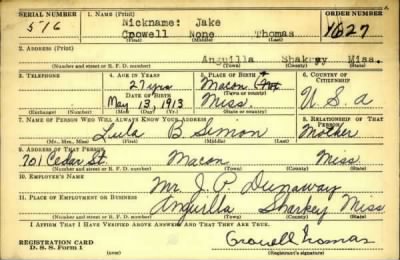 SERIAL NUMBER 1. NAME (Print) ORDER NUMBER
Nickname: Jake
516 Crowell None Thomas 1027
(First) (Middle) (Last)
2. ADDRESS (Print)
Anguilla Sharkey Miss.
(Number and street or R. F. D. number) (Town) (County) (State)
3. TELEPHONE 4. AGE IN YEARS 5. PLACE OF BIRTH 6. COUNTRY OF CITIZENSHIP
27 yrs Macon
DATE OF BIRTH (Town or county)
May 13, 1913 Miss. U.S.a
(Exchange) (Number) (Mo.) (Day) (Yr.) (State or country)
7. NAME OF PERSON WHO WILL ALWAYS KNOW YOUR ADDRESS 8. RELATIONSHIP OF THAT PERSON
Lula B. Simon Mother
(Mr., Mrs., Miss) (First) (Middle) (Last)
9. ADDRESS OF THAT PERSON
701 Cedar St. Macon Miss
(Number and street or R. F. D. number) (Town) (County) (State)
10. EMPLOYER'S NAME
Mr. J. P. Dunaway
11. PLACE OF EMPLOYMENT OR BUSINESS
Anguilla Sharkey Miss
(Number and street or R. F. D. number) (Town) (County) (State)
I AFFIRM THAT I HAVE VERIFIED ABOVE ANSWERS AND THAT THEY ARE TRUE.
REGISTRATION CARD
D. S. S. Form 1 (Registrant's signature)